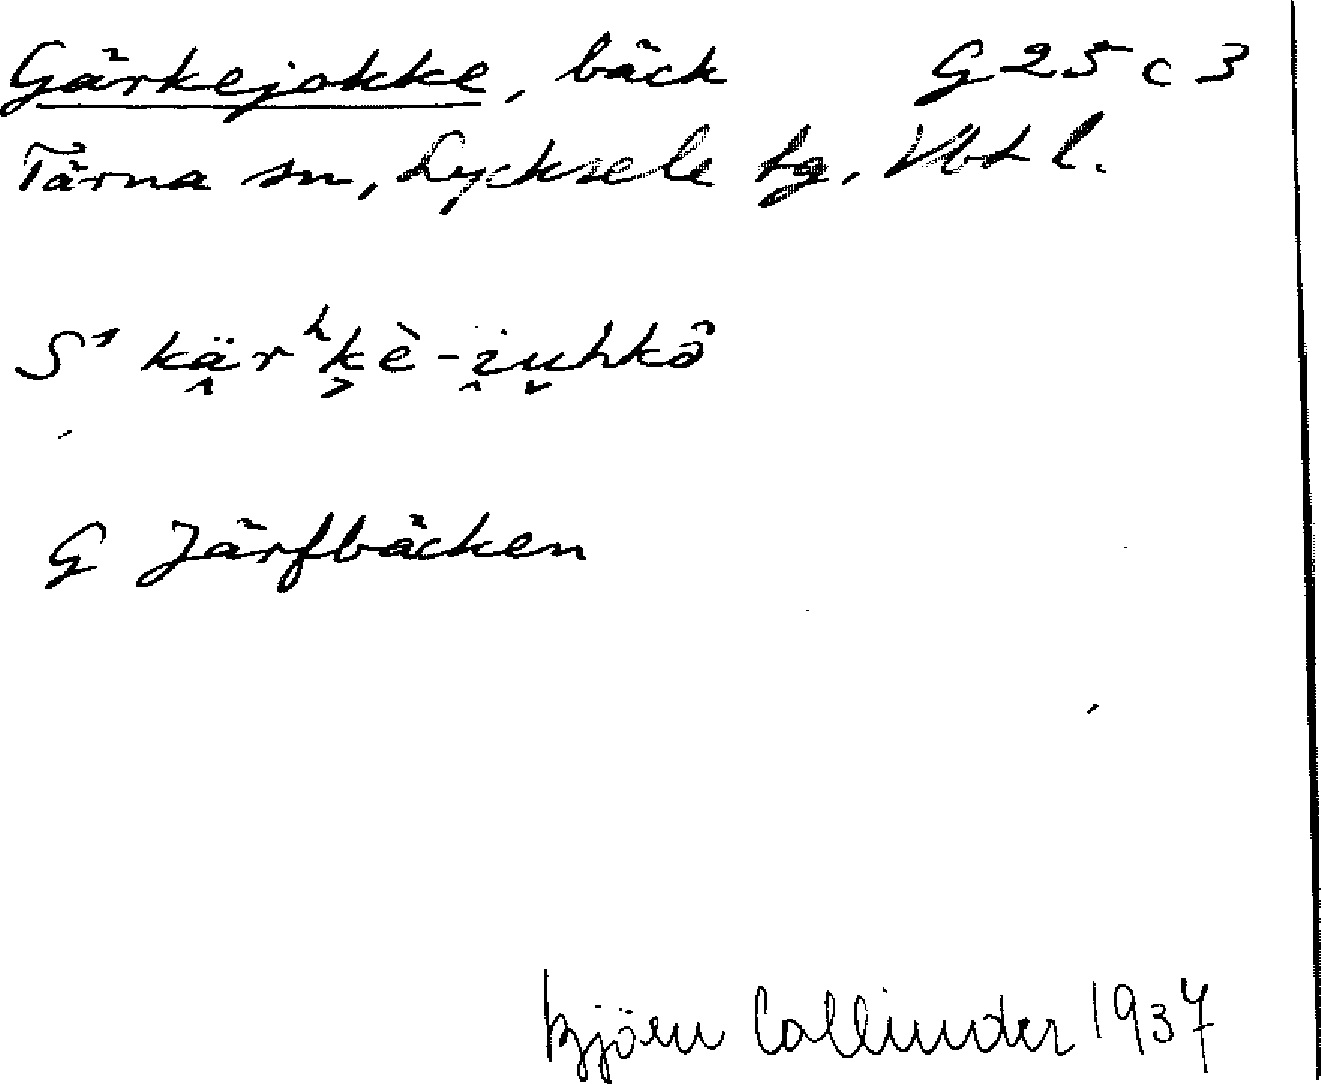 Gärkejokke, bäck G 25 c 3
Tärna sn, Lycksele lg. Vbtl.
S¹ kä̭rʰk̬è-i̭u̬hkô
G Järfbäcken
Björn Collinder 1937